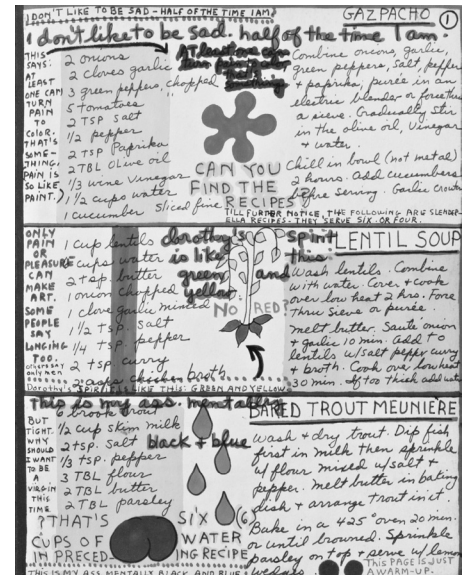 I DON'T LIKE TO BE SAD - HALF OF THE TIME I AM.
GAZPACHO
1
I don't like to be sad. half of the time I am.
THIS SAYS: AT LEAST ONE CAN TURN PAIN TO COLOR. THAT'S SOMETHING. PAIN IS SO LIKE PAINT.
2 onions
2 cloves garlic
3 green peppers, chopped
5 tomatoes
2 TSP salt
1/2 pepper
2 TSP Paprika
2 TBL Olive oil
1/3 wine Vinegar
1 1/2 cups water
1 cucumber sliced fine
At least one can
turn pain to color
that's
something
CAN YOU
FIND THE
RECIPES
Combine onions, garlic,
green peppers, salt, pepper
& paprika, purée in an
electric blender or force thru
a sieve. Gradually stir
in the olive oil, Vinegar
& water.
Chill in bowl (not metal)
2 hours. Add cucumbers
before serving. Garlic Croutn
TILL FURDER NOTICE, THE FOLLOWING ARE SLENDER-
ELLA RECIPES - THEY SERVE SIX OR FOUR.
ONLY PAIN OR PLEASURE CAN MAKE ART. SOME PEOPLE SAY LONGING TOO.
1 cup lentils
cups water
2 tsp butter
1 onion chopped
1 clove garlic minced
1 1/2 tsp. salt
1/4 tsp. pepper
2 tsp curry
cups chicken broth.
dorothy's spirit
is like this:
green and
yellow.
NO RED?
LENTIL SOUP
Wash lentils. Combine
with water. Cover & cook
over low heat 2 hrs. Force
thru sieve or purée.
melt butter. Sauté onion
& garlic 10 min. Add to
lentils w/salt peper curry
& broth. Cook over low heat
30 min. If too thick add wat
Dorothy's SPIRIT IS LIKE THIS: GREEN AND YELLOW.
This is my ass. mentally
black + blue
BUT TIGHT. WHY SHOULD I WANT TO BE A VIRGIN THIS TIME
6 brook trout
1/2 cup skim milk
2 tsp. Salt
1/3 tsp. pepper
3 TBL flour
2 TBL butter
2 TBL parsley
?THAT'S SIX (6)
CUPS OF WATER
IN PRECEDING RECIPE
BAKED TROUT MEUNIÈRE
Wash & dry trout. Dip fish
first in milk then sprinkle
w/ flour mixed w/salt &
pepper. melt butter in bating
dish & arrange trout in it.
Bake in a 425° oven 20 min.
or until browned. Sprinkle
parsley on top & serve w/ lemon
wedges
THIS PAGE IS JUST
A WARM-UP.
THIS IS MY ASS MENTALLY BLACK AND BLUE